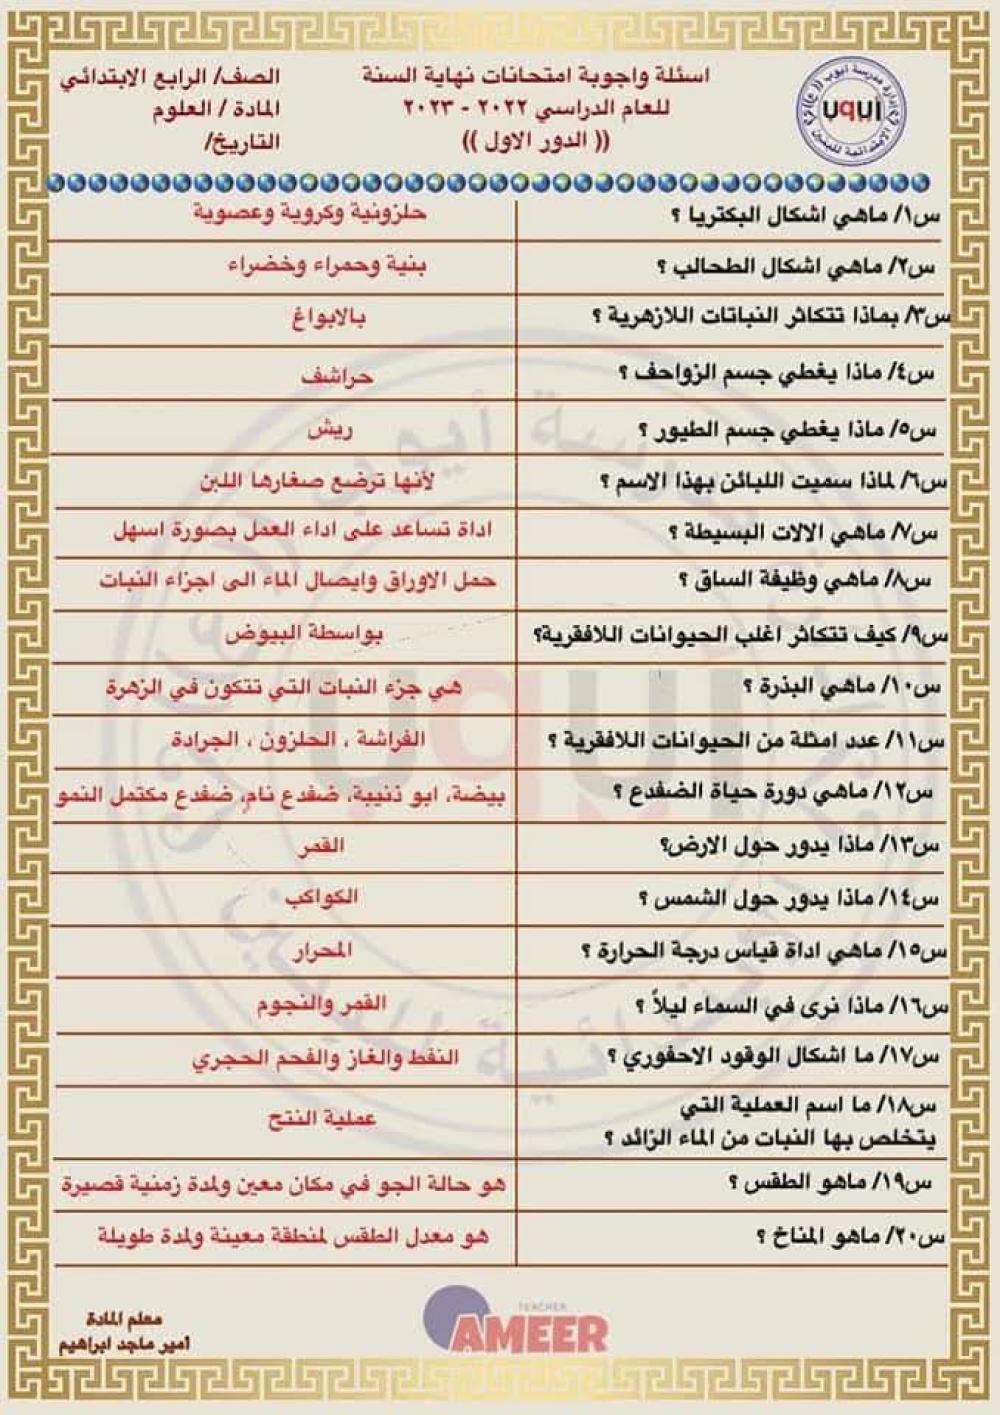 اسئلة واجوبة امتحانات نهاية السنة
للعام الدراسي ٢٠٢٢ - ٢٠٢٣
(( الدور الاول ))
الصف/ الرابع الابتدائي
المادة / العلوم
التاريخ/
ادارة مدرسة ايوب ((ع))
أيوب
الابتدائية للبنين
س١/ ماهي اشكال البكتريا ؟ حلزونية وكروية وعصوية
س٢/ ماهي اشكال الطحالب ؟ بنية وحمراء وخضراء
س٣/ بماذا تتكاثر النباتات اللازهرية ؟ بالابواغ
س٤/ ماذا يغطي جسم الزواحف ؟ حراشف
س٥/ ماذا يغطي جسم الطيور ؟ ريش
س٦/ لماذا سميت اللبائن بهذا الاسم ؟ لأنها ترضع صغارها اللبن
س٧/ ماهي الالات البسيطة ؟ اداة تساعد على اداء العمل بصورة اسهل
س٨/ ماهي وظيفة الساق ؟ حمل الاوراق وايصال الماء الى اجزاء النبات
س٩/ كيف تتكاثر اغلب الحيوانات اللافقرية؟ بواسطة البيوض
س١٠/ ماهي البذرة ؟ هي جزء النبات التي تتكون في الزهرة
س١١/ عدد امثلة من الحيوانات اللافقرية ؟ الفراشة ، الحلزون ، الجرادة
س١٢/ ماهي دورة حياة الضفدع ؟ بيضة، ابو ذنيبة، ضفدع نامٍ، ضفدع مكتمل النمو
س١٣/ ماذا يدور حول الارض؟ القمر
س١٤/ ماذا يدور حول الشمس ؟ الكواكب
س١٥/ ماهي اداة قياس درجة الحرارة ؟ المحرار
س١٦/ ماذا نرى في السماء ليلاً ؟ القمر والنجوم
س١٧/ ما اشكال الوقود الاحفوري ؟ النفط والغاز والفحم الحجري
س١٨/ ما اسم العملية التي
يتخلص بها النبات من الماء الزائد ؟ عملية النتح
س١٩/ ماهو الطقس ؟ هو حالة الجو في مكان معين ولمدة زمنية قصيرة
س٢٠/ ماهو المناخ ؟ هو معدل الطقس لمنطقة معينة ولمدة طويلة
TEACHER
AMEER
معلم المادة
أمير ماجد ابراهيم